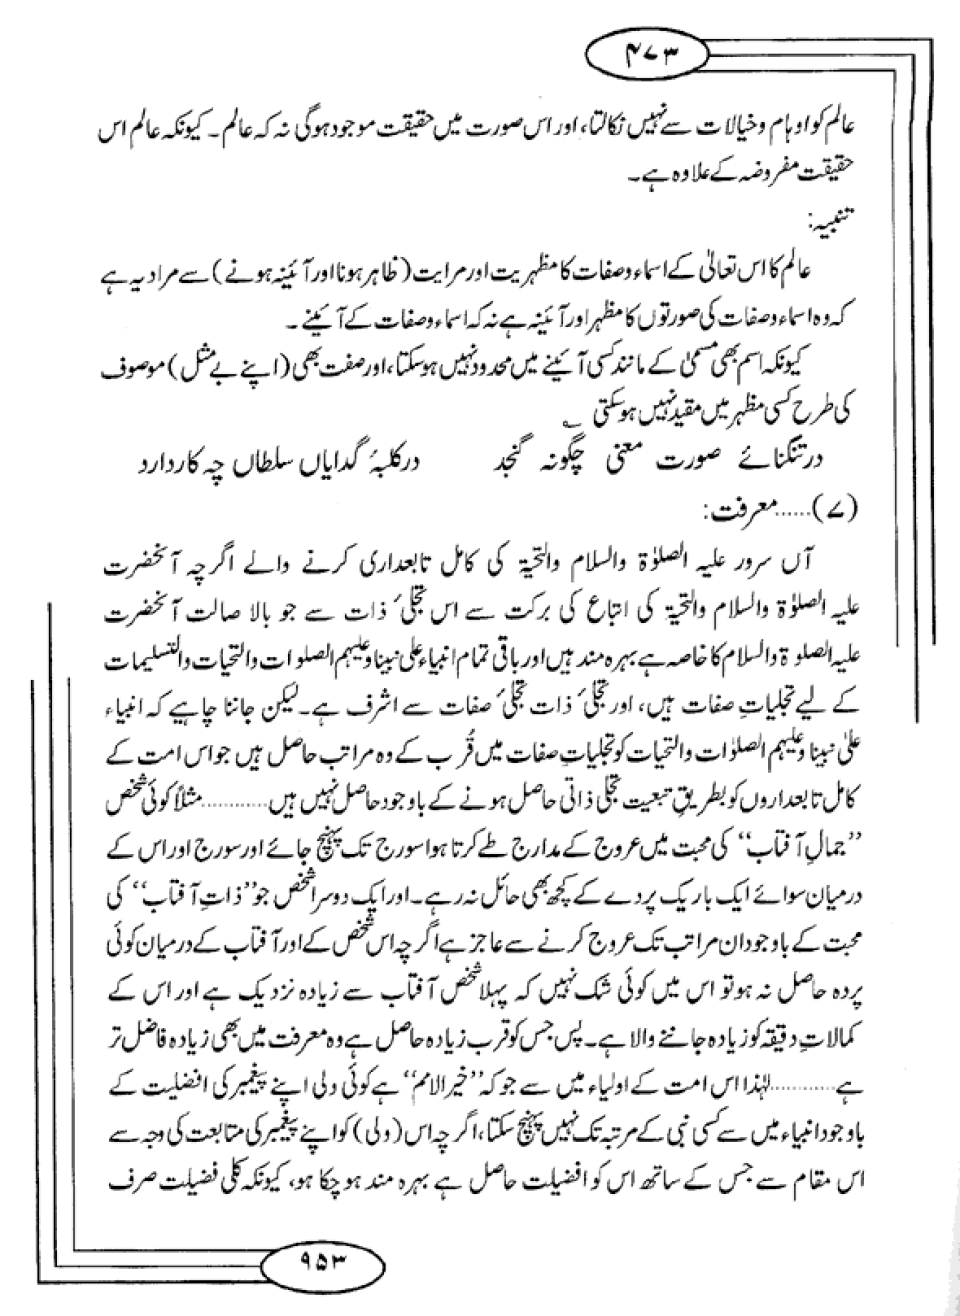 ۴۷۳
عالم کو اوہام و خیالات سے نہیں نکالتا، اور اس صورت میں حقیقت موجود ہوگی نہ کہ عالم۔ کیونکہ عالم اس
حقیقت مفروضہ کے علاوہ ہے۔
تنبیہ:
عالم کا اس تعالیٰ کے اسماء و صفات کا مظہریت اور مرایت (ظاہر ہونا اور آئینہ ہونے) سے مراد یہ ہے
کہ وہ اسماء و صفات کی صورتوں کا مظہر اور آئینہ ہے نہ کہ اسماء و صفات کے آئینے۔
کیونکہ اسم بھی مسمیٰ کے مانند کسی آئینے میں محدود نہیں ہو سکتا، اور صفت بھی (اپنے بے مثل) موصوف
کی طرح کسی مظہر میں مقید نہیں ہو سکتی ؎
در تنگنائے صورت معنی چگونہ گنجد در کلبۂ گدایاں سلطاں چہ کار دارد
(۷)......معرفت:
آں سرور علیہ الصلوٰۃ والسلام والتحیۃ کی کامل تابعداری کرنے والے اگرچہ آنحضرت
علیہ الصلوٰۃ والسلام والتحیۃ کی اتباع کی برکت سے اس تجلیٔ ذات سے جو بالا صالت آنحضرت
علیہ الصلوۃ والسلام کا خاصہ ہے بہرہ مند ہیں اور باقی تمام انبیاء علی نبینا وعلیہم الصلوات والتحیات والتسلیمات
کے لیے تجلیاتِ صفات ہیں، اور تجلیٔ ذات تجلیٔ صفات سے اشرف ہے۔ لیکن جاننا چاہیے کہ انبیاء
علیٰ نبینا وعلیہم الصلوٰات والتحیات کو تجلیاتِ صفات میں قُرب کے وہ مراتب حاصل ہیں جو اس امت کے
کامل تابعداروں کو بطریقِ تبعیت تجلی ذاتی حاصل ہونے کے باوجود حاصل نہیں ہیں............مثلاً کوئی شخص
’’جمالِ آفتاب‘‘ کی محبت میں عروج کے مدارج طے کرتا ہوا سورج تک پہنچ جائے اور سورج اور اس کے
درمیان سوائے ایک باریک پردے کے کچھ بھی حائل نہ رہے۔ اور ایک دوسرا شخص جو ’’ذاتِ آفتاب‘‘ کی
محبت کے باوجود ان مراتب تک عروج کرنے سے عاجز ہے اگرچہ اس شخص کے اور آفتاب کے درمیان کوئی
پردہ حاصل نہ ہو تو اس میں کوئی شک نہیں کہ پہلا شخص آفتاب سے زیادہ نزدیک ہے اور اس کے
کمالاتِ دقیقہ کو زیادہ جاننے والا ہے۔ پس جس کو قرب زیادہ حاصل ہے وہ معرفت میں بھی زیادہ فاضل تر
ہے............لہٰذا اس امت کے اولیاء میں سے جو کہ ’’خیر الامم‘‘ ہے کوئی ولی اپنے پیغمبر کی افضلیت کے
باوجود انبیاء میں سے کسی نبی کے مرتبہ تک نہیں پہنچ سکتا، اگرچہ اس (ولی) کو اپنے پیغمبر کی متابعت کی وجہ سے
اس مقام سے جس کے ساتھ اس کو افضلیت حاصل ہے بہرہ مند ہو چکا ہو، کیونکہ کلی فضیلت صرف
۹۵۳